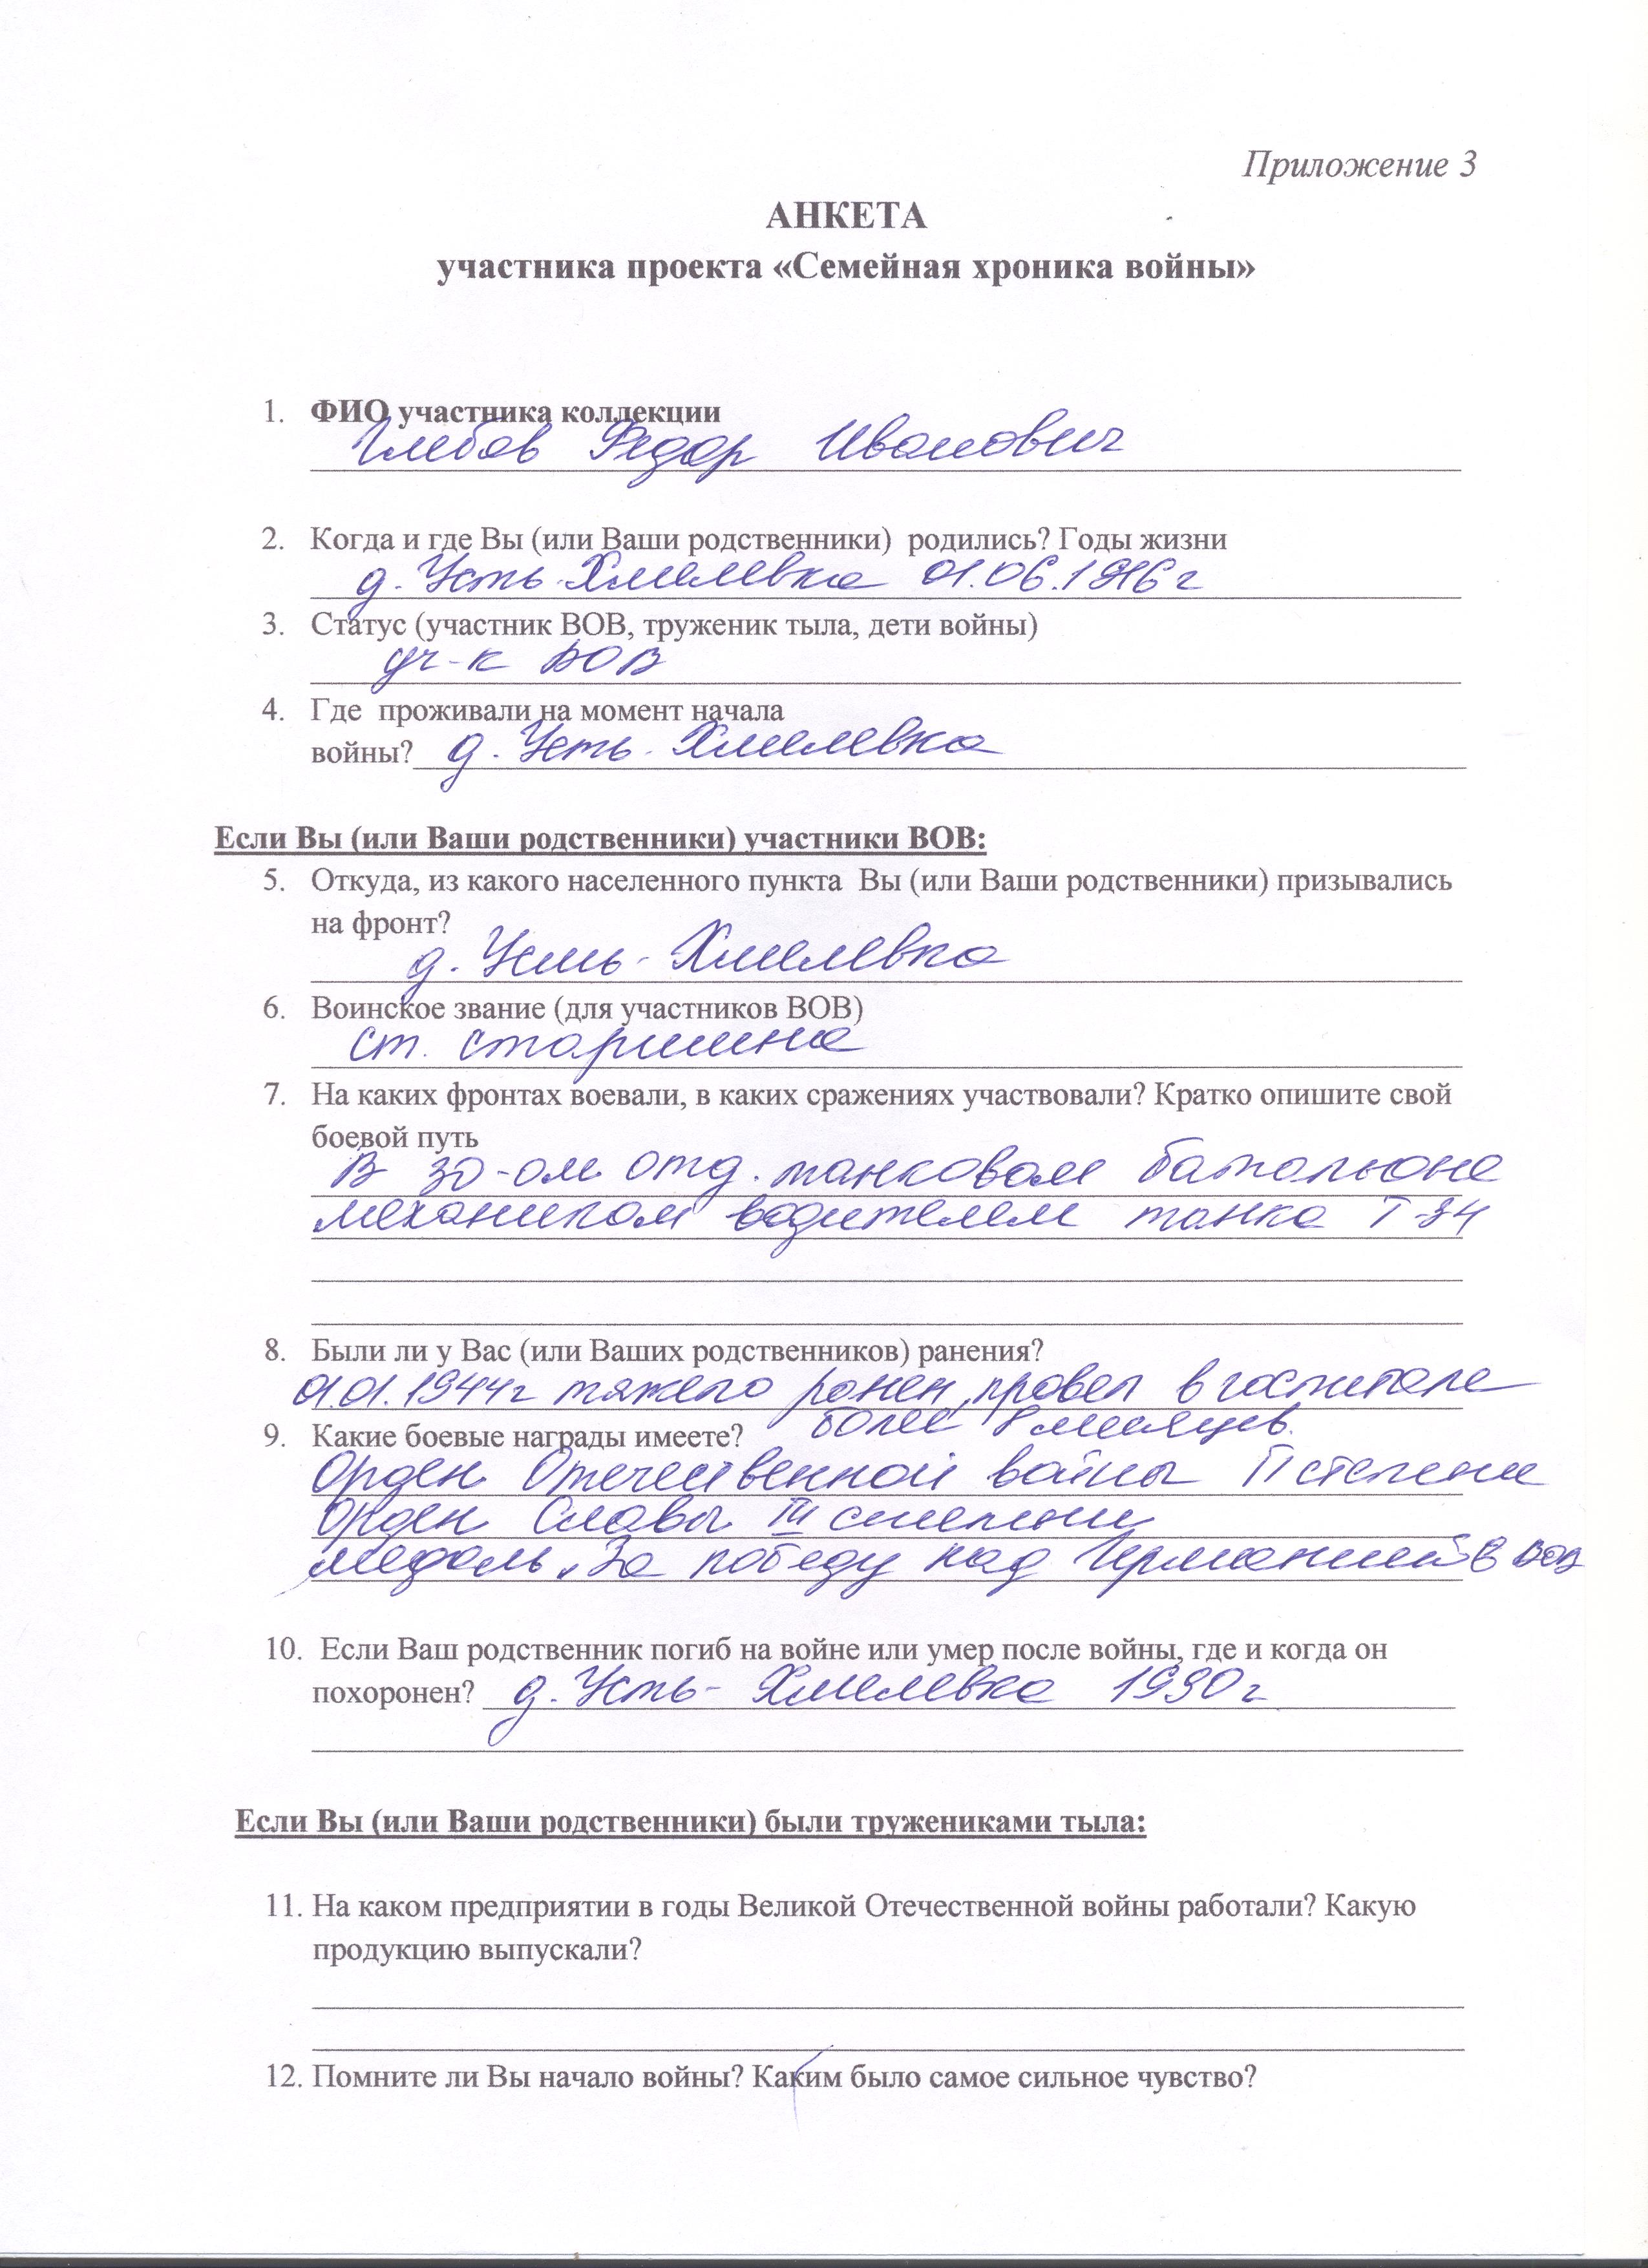 Приложение 3
АНКЕТА
участника проекта «Семейная хроника войны»
1. ФИО участника коллекции
Глебов Федор Иванович
2. Когда и где Вы (или Ваши родственники) родились? Годы жизни
д. Усть-Хмелевка 01.06.1916 г
3. Статус (участник ВОВ, труженик тыла, дети войны)
уч-к ВОВ
4. Где проживали на момент начала
войны? д. Усть-Хмелевка
Если Вы (или Ваши родственники) участники ВОВ:
5. Откуда, из какого населенного пункта Вы (или Ваши родственники) призывались
на фронт?
д. Усть-Хмелевка
6. Воинское звание (для участников ВОВ)
ст. старшина
7. На каких фронтах воевали, в каких сражениях участвовали? Кратко опишите свой
боевой путь
В 30-ом отд. танковом батальоне
механиком водителем танка Т-34
8. Были ли у Вас (или Ваших родственников) ранения?
01.01.1944г тяжело ранен, провел в госпитале
более 8 месяцев.
9. Какие боевые награды имеете?
Орден Отечественной войны II степени
Орден Славы III степени
медаль „За победу над Германией в ВОВ
10. Если Ваш родственник погиб на войне или умер после войны, где и когда он
похоронен? д. Усть-Хмелевка 1990 г
Если Вы (или Ваши родственники) были тружениками тыла:
11. На каком предприятии в годы Великой Отечественной войны работали? Какую
продукцию выпускали?
12. Помните ли Вы начало войны? Каким было самое сильное чувство?